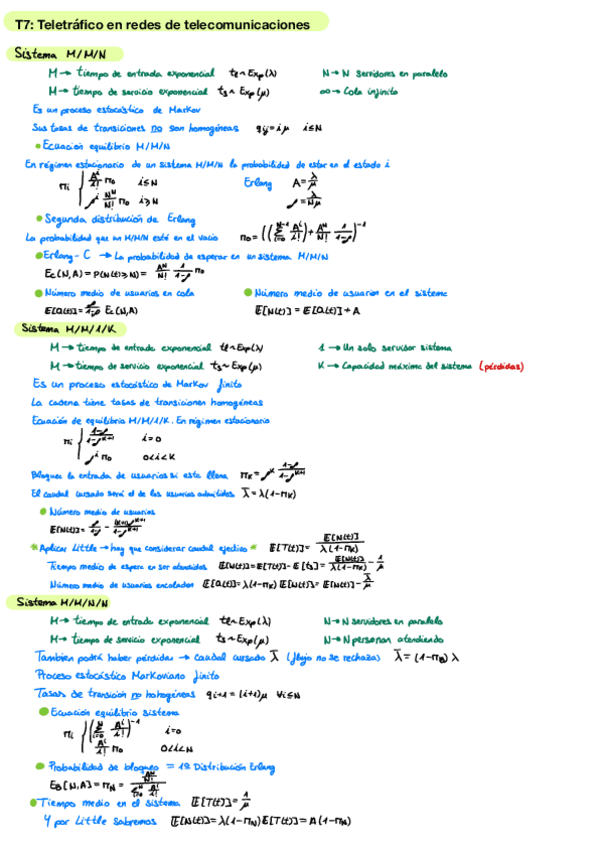 T7: Teletráfico en redes de telecomunicaciones
Sistema M/M/N
M → tiempo de entrada exponencial te ~ Exp(λ) N → N servidores en paralelo
M → tiempo de servicio exponencial ts ~ Exp(μ) ∞ → Cola infinita
Es un proceso estocástico de Markov
Sus tasas de transiciones no son homogéneas qij = iμ i≤N
• Ecuación equilibrio M/M/N
En régimen estacionario de un sistema M/M/N la probabilidad de estar en el estado i
πi { A^i/i! π0 i≤N Erlang A = λ/μ
ρ^i N^N/N! π0 i≥N ρ = λ/Nμ
• Segunda distribución de Erlang
La probabilidad que un M/M/N esté en el vacío π0 = ((Σ_{i=0}^{N-1} A^i/i!) + A^N/N! 1/(1-ρ))^-1
• Erlang-C → La probabilidad de esperar en un sistema M/M/N
Ec(N,A) = P(N(t)≥N) = A^N/N! 1/(1-ρ) π0
• Número medio de usuarios en cola • Número medio de usuarios en el sistema
E[Q(t)] = ρ/(1-ρ) Ec(N,A) E[N(t)] = E[Q(t)] + A
Sistema M/M/1/K
M → tiempo de entrada exponencial te ~ Exp(λ) 1 → Un solo servidor sistema
M → tiempo de servicio exponencial ts ~ Exp(μ) K → Capacidad máxima del sistema (pérdidas)
Es un proceso estocástico de Markov finito
La cadena tiene tasas de transiciones homogéneas
Ecuación de equilibrio M/M/1/K. En régimen estacionario
πi { (1-ρ)/(1-ρ^{K+1}) i=0
ρ^i π0 0<i<K
Bloquea la entrada de usuarios si esta llena πK = ρ^K (1-ρ)/(1-ρ^{K+1})
El caudal cursado será el de los usuarios admitidos λ̄ = λ(1-πK)
• Número medio de usuarios
E[N(t)] = ρ/(1-ρ) - (K+1)ρ^{K+1}/(1-ρ^{K+1})
* Aplicar Little → hay que considerar caudal efectivo * E[T(t)] = E[N(t)]/(λ(1-πK))
Tiempo medio de espera en ser atendidos E[W(t)] = E[T(t)] - E[ts] = E[N(t)]/(λ(1-πK)) - 1/μ
Número medio de usuarios encolados E[Q(t)] = λ(1-πK) E[W(t)] = E[N(t)] - λ̄/μ
Sistema M/M/N/N
M → tiempo de entrada exponencial te ~ Exp(λ) N → N servidores en paralelo
M → tiempo de servicio exponencial ts ~ Exp(μ) N → N personan atendiendo
Tambien podrá haber pérdidas → caudal cursado λ̄ (flujo no se rechaza) λ̄ = (1-πN) λ
Proceso estocástico Markoviano finito
Tasas de transición no homogéneas qi+1 = (i+1)μ ∀i≤N
• Ecuación equilibrio sistema
πi { (Σ_{i=0}^{N} A^i/i!)^-1 i=0
A^i/i! π0 0<i<N
• Probabilidad de bloqueo = 1ª Distribución Erlang
EB[N,A] = πN = (A^N/N!)/(Σ_{i=0}^{N} A^i/i!)
• Tiempo medio en el sistema E[T(t)] = 1/μ
Y por Little sabremos E[N(t)] = λ(1-πN) E[T(t)] = A(1-πN)